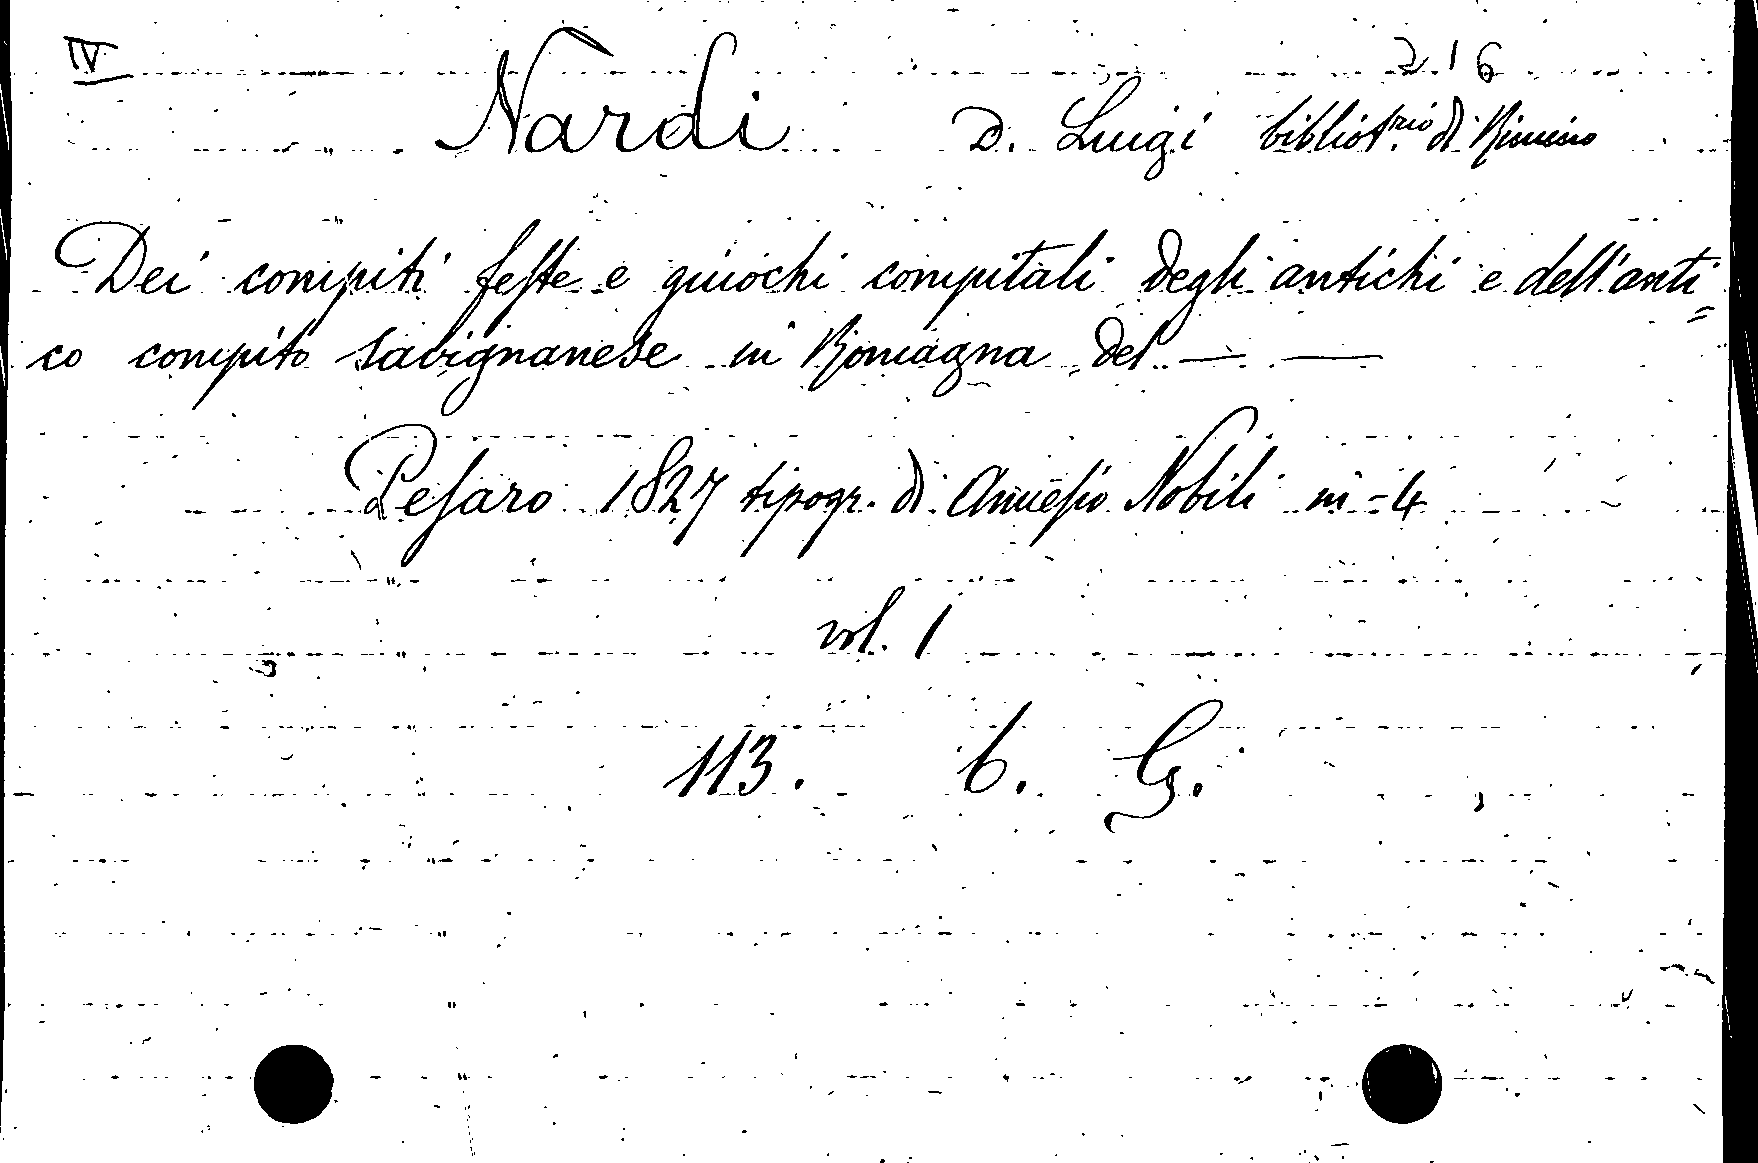 IV
216
Nardi D. Luigi bibliot.rio di Rimino
Dei compiti feste e giuochi compitali degli antichi e dell'anti=
co compito savignanese in Romagna del — —
Pesaro 1827 tipogr. di Annesio Nobili in-4
vol. 1
113. 6. G.